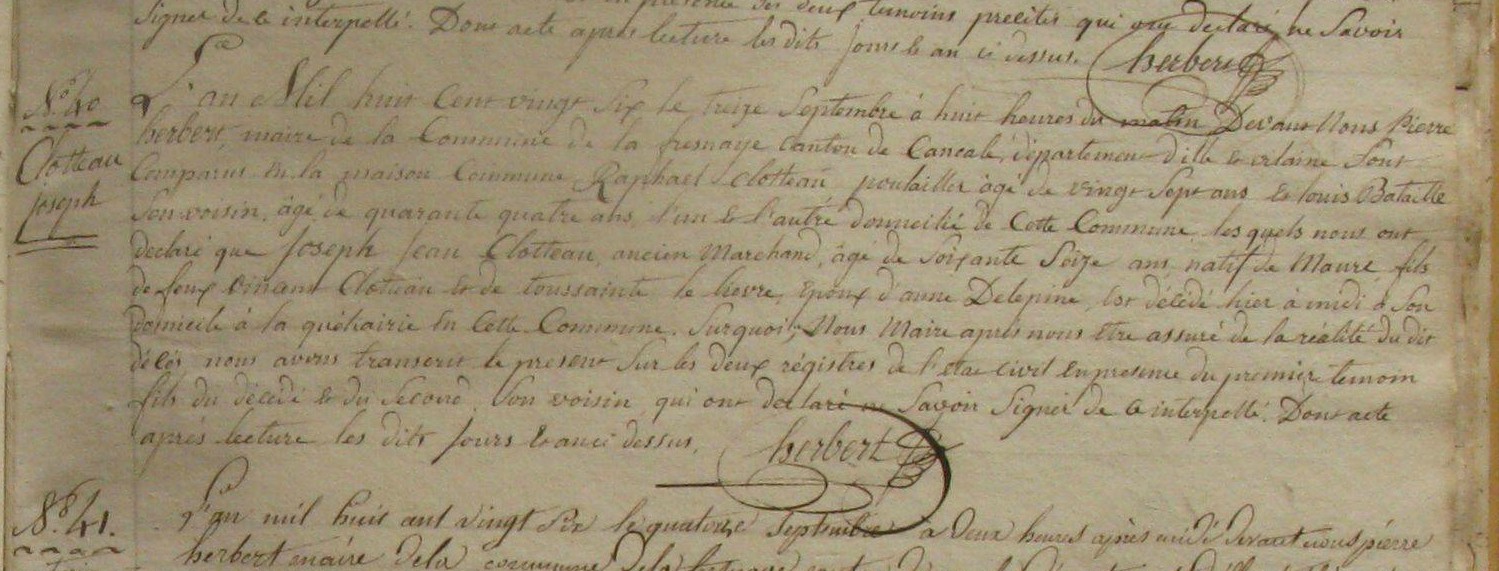 en présence des deux temoins précités qui ont declaré ne Savoir
Signer de ce interpellé. Dont acte après lecture les dits jours & an ci dessus. herbert
N.° 40
Clotteau
joseph
L'an Mil huit Cent vingt Six le treize Septembre à huit heures du matin Devant Nous Pierre
herbert, maire de la Commune de la fresnaye Canton de Cancale, département d'ille & vilaine Sont
Comparus en la maison Commune Raphael Clotteau poulailler âgé de vingt Sept ans & louis Bataille
Son voisin, âgé de quarante quatre ans, l'un & l'autre domicilié de Cette Commune, les quels nous ont
declaré que Joseph Jean Clotteau, ancien Marchand, âgé de Soixante Seize ans, natif de Maure fils
de feux vinant Clotteau & de toussainte le lievre, Epoux d'anne Delepine, Est décédé hier à midi à Son
domicile à la quéhairie En Cette Commune. Surquoi, Nous Maire après nous être assuré de la réalité du dit
décés, nous avons transcrit le present Sur les deux régistres de l'etat civil En presence du premier temoin
fils du décédé & du Second Son voisin, qui ont declaré ne Savoir Signer de ce interpellé. Dont acte
après lecture les dits Jours & an ci dessus. herbert
N.° 41.
L'an mil huit cent vingt Six le quatorze Septembre à deux heures après midi devant nous pierre
herbert maire de la commune de la